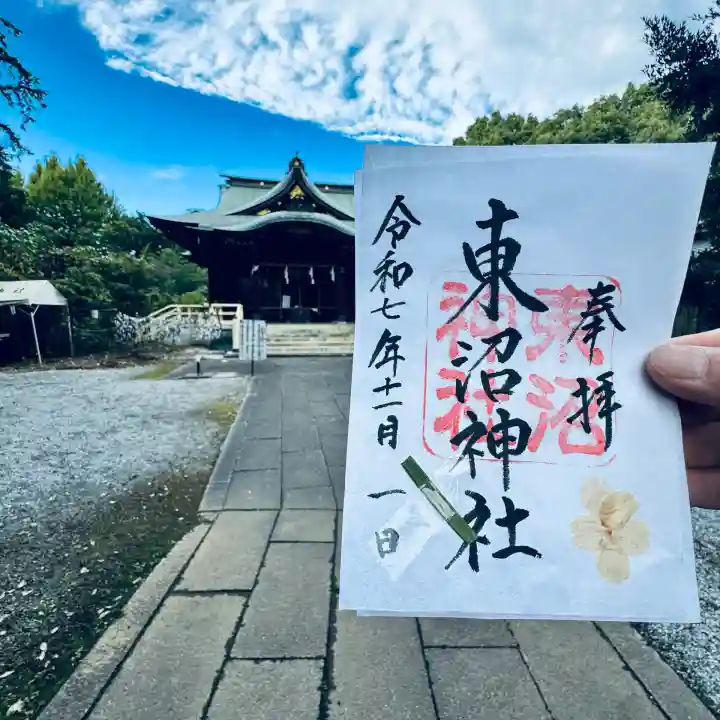 奉拝
東沼神社
東沼
神社
令和七年十一月一日